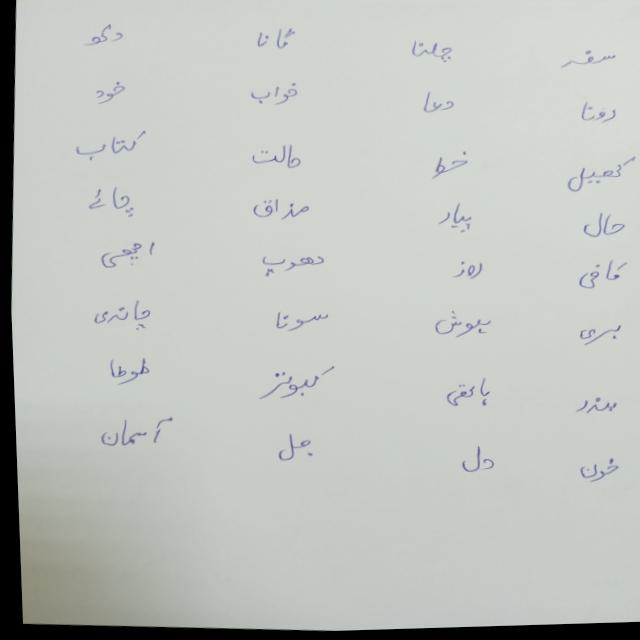 سفر چلنا گانا دکھ
رونا دعا خواب خود
کھیل خط حالت کتاب
حال پیار مذاق چائے
کافی روز دھوپ اچھی
بری ہوش سونا چاندی
بندر ہاتھی کبوتر طوطا
خون دل جل آسمان